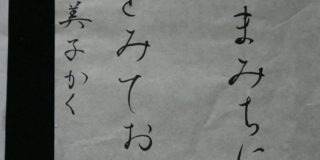 まみちに
とみてお
美子かく